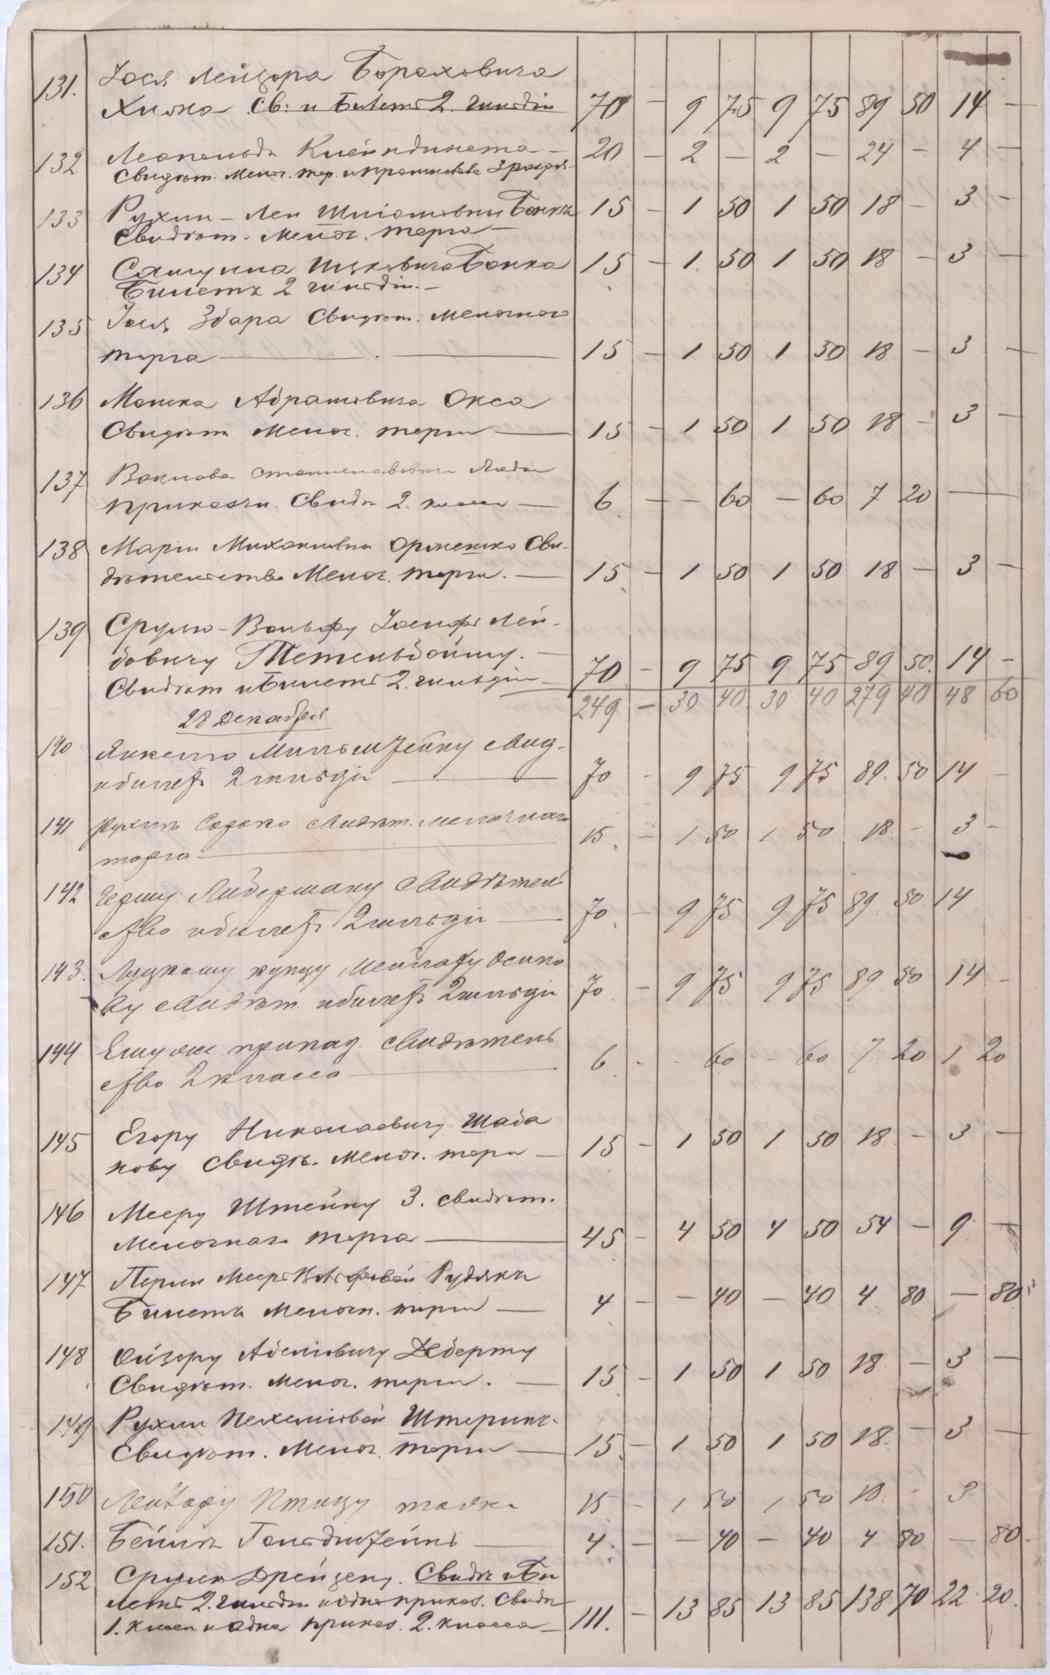 131. Іося Лейзора Бораховича
Хияка Св: и Билетъ 2. гильдіи 70 — 9 75 9 75 89 50 14 —
132 Леопольда — 20 — 2 — 2 — 24 — 4 —
Свидѣт. Мелоч. тор.
133 Рухли-Леи Шліомовны 15 — 1 50 1 50 18 — 3 —
Свидѣт. Мелоч. торга —
134 Самуила Ицковича 15 — 1 50 1 50 18 — 3 —
Билетъ 2 гильдіи. —
135 Іося Збара Свидѣт. мелочного
торга — 15 — 1 50 1 50 18 — 3 —
136 Мошка Абрамовича Окса
Свидѣт Мелоч. торга — 15 — 1 50 1 50 18 — 3 —
137
приказч. Свидѣ 2. класса — 6 — — 60 — 60 7 20 —
138 Маріи Михайловны Оржешко Сви-
дѣтельство Мелоч. торга. — 15 — 1 50 1 50 18 — 3 —
139 Срулю-Вольфу Іосифу Лей-
бовичу Тетельбойму. —
Свидѣт и Билетъ 2. гильдіи 70 — 9 75 9 75 89 50 14 —
249 — 30 40 30 40 279 40 48 60
28 Декабря
140 Янкелю Мильштейну свид.
и билетъ 2 гильдіи — 70 - 9 75 9 75 89 50 14 -
141 Рухлѣ свидѣт. мелочнаго
торга — 15 - 1 50 1 50 18 - 3 -
142 Гершу Либерману свидѣтель
ство и билетъ 2 гильдіи — 70 - 9 75 9 75 89 50 14
143. Луцкому купцу Осипо
ву свидѣт и билетъ 2 гильдіи 70 - 9 75 9 75 89 50 14 -
144 свидѣтель
ство 2 класса — 6 - - 60 - 60 7 20 1 20
145 Егору Николаевичу Шаба
нову Свидѣ. мелоч. торга — 15 - 1 50 1 50 18 - 3 —
146 Мееру Штейну 3. свидѣт.
Мелочнаго торга — 45 - 4 50 4 50 54 — 9 —
147 Перли Рудякъ
Билетъ мелочн. торга — 4 — — 40 — 40 4 80 — 80
148 Ойзеру Абелевичу
Свидѣт. Мелоч. торга. — 15 — 1 50 1 50 18 — 3 —
149 Рухли Штеринг.
Свидѣт. Мелоч. торга — 15. — 1 50 1 50 18 — 3 —
150 Птицу 15 - 1 50 1 50 18 - 3
151. Бейлѣ Гольдштейнъ — 4. — — 40 — 40 4 80 — 80.
152 Срулю Дрейцену. Свидѣ и Би
летъ 2. гильдіи и одна приказ. Свидѣ
1. класса и одна приказ. 2. класса — 111. — 13 85 13 85 138 70 22 20.